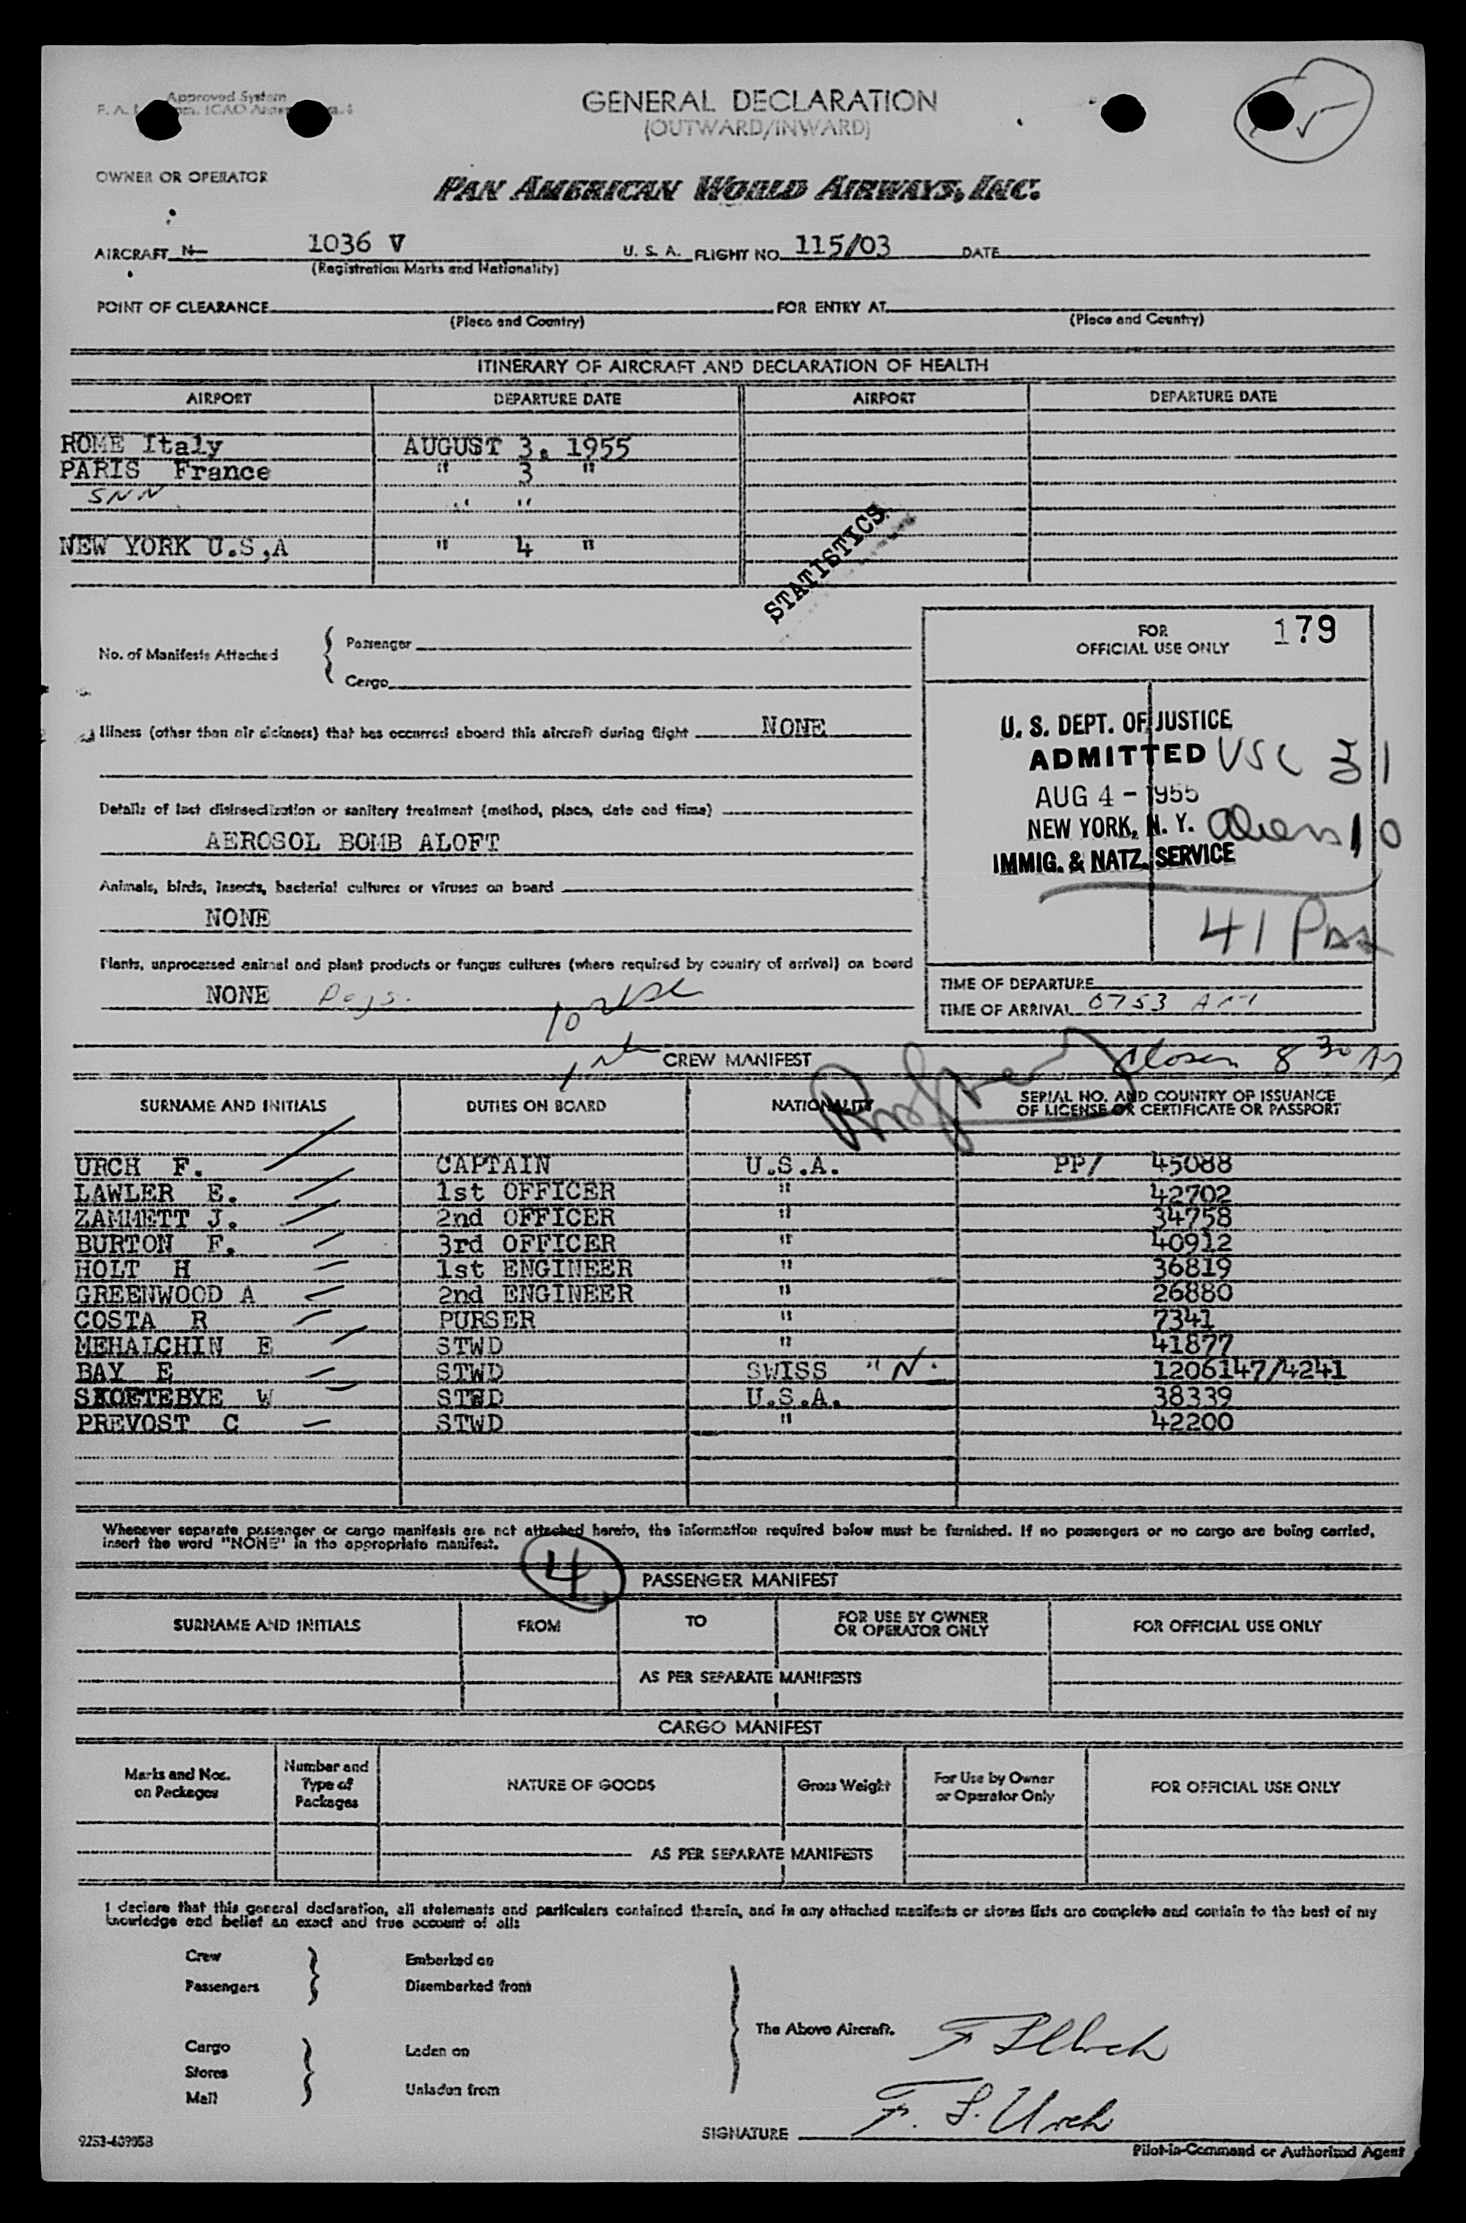 Approved System
GENERAL DECLARATION
(OUTWARD/INWARD)
OWNER OR OPERATOR
PAN AMERICAN WORLD AIRWAYS, INC.
AIRCRAFT N 1036 V U. S. A. FLIGHT NO. 115/03 DATE
(Registration Marks and Nationality)
POINT OF CLEARANCE FOR ENTRY AT
(Place and Country) (Place and Country)
ITINERARY OF AIRCRAFT AND DECLARATION OF HEALTH
AIRPORT DEPARTURE DATE AIRPORT DEPARTURE DATE
ROME Italy AUGUST 3. 1955
PARIS France " 3 "
SNN " "
NEW YORK U.S,A " 4 "
STATISTICS
FOR
OFFICIAL USE ONLY 179
No. of Manifests Attached { Passenger
Cargo
Illness (other than air sickness) that has occurred aboard this aircraft during flight NONE
U. S. DEPT. OF JUSTICE
ADMITTED USC 31
AUG 4 - 1955
NEW YORK, N. Y. Aliens 10
IMMIG. & NATZ. SERVICE
41 Pax
Details of last disinsectization or sanitary treatment (method, place, date and time)
AEROSOL BOMB ALOFT
Animals, birds, insects, bacterial cultures or viruses on board
NONE
Plants, unprocessed animal and plant products or fungus cultures (where required by country of arrival) on board
NONE
10 USC
TIME OF DEPARTURE
TIME OF ARRIVAL 0753 AM
CREW MANIFEST
SURNAME AND INITIALS DUTIES ON BOARD NATIONALITY SERIAL NO. AND COUNTRY OF ISSUANCE
OF LICENSE OR CERTIFICATE OR PASSPORT
URCH F. CAPTAIN U.S.A. PP/ 45088
LAWLER E. 1st OFFICER " 42702
ZAMMETT J. 2nd OFFICER " 34758
BURTON F. 3rd OFFICER " 40912
HOLT H 1st ENGINEER " 36819
GREENWOOD A 2nd ENGINEER " 26880
COSTA R PURSER " 7341
MEHALCHIN E STWD " 41877
BAY E STWD SWISS " N. 1206147/4241
SKOETEBYE W STWD U.S.A. 38339
PREVOST C STWD " 42200
Whenever separate passenger or cargo manifests are not attached hereto, the information required below must be furnished. If no passengers or no cargo are being carried,
insert the word "NONE" in the appropriate manifest.
4
PASSENGER MANIFEST
SURNAME AND INITIALS FROM TO FOR USE BY OWNER
OR OPERATOR ONLY FOR OFFICIAL USE ONLY
AS PER SEPARATE MANIFESTS
CARGO MANIFEST
Marks and Nos.
on Packages Number and
Type of
Packages NATURE OF GOODS Gross Weight For Use by Owner
or Operator Only FOR OFFICIAL USE ONLY
AS PER SEPARATE MANIFESTS
I declare that this general declaration, all statements and particulars contained therein, and in any attached manifests or stores lists are complete and contain to the best of my
knowledge and belief an exact and true account of all:
Crew Embarked on
Passengers Disembarked from
The Above Aircraft.
Cargo Laden on
Stores
Mail Unladen from
F S Urch
F. S. Urch
SIGNATURE
Pilot-in-Command or Authorized Agent